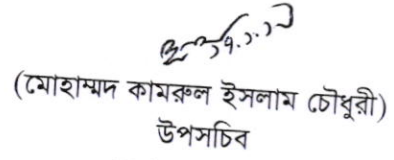 (মোহাম্মদ কামরুল ইসলাম চৌধুরী)
উপসচিব